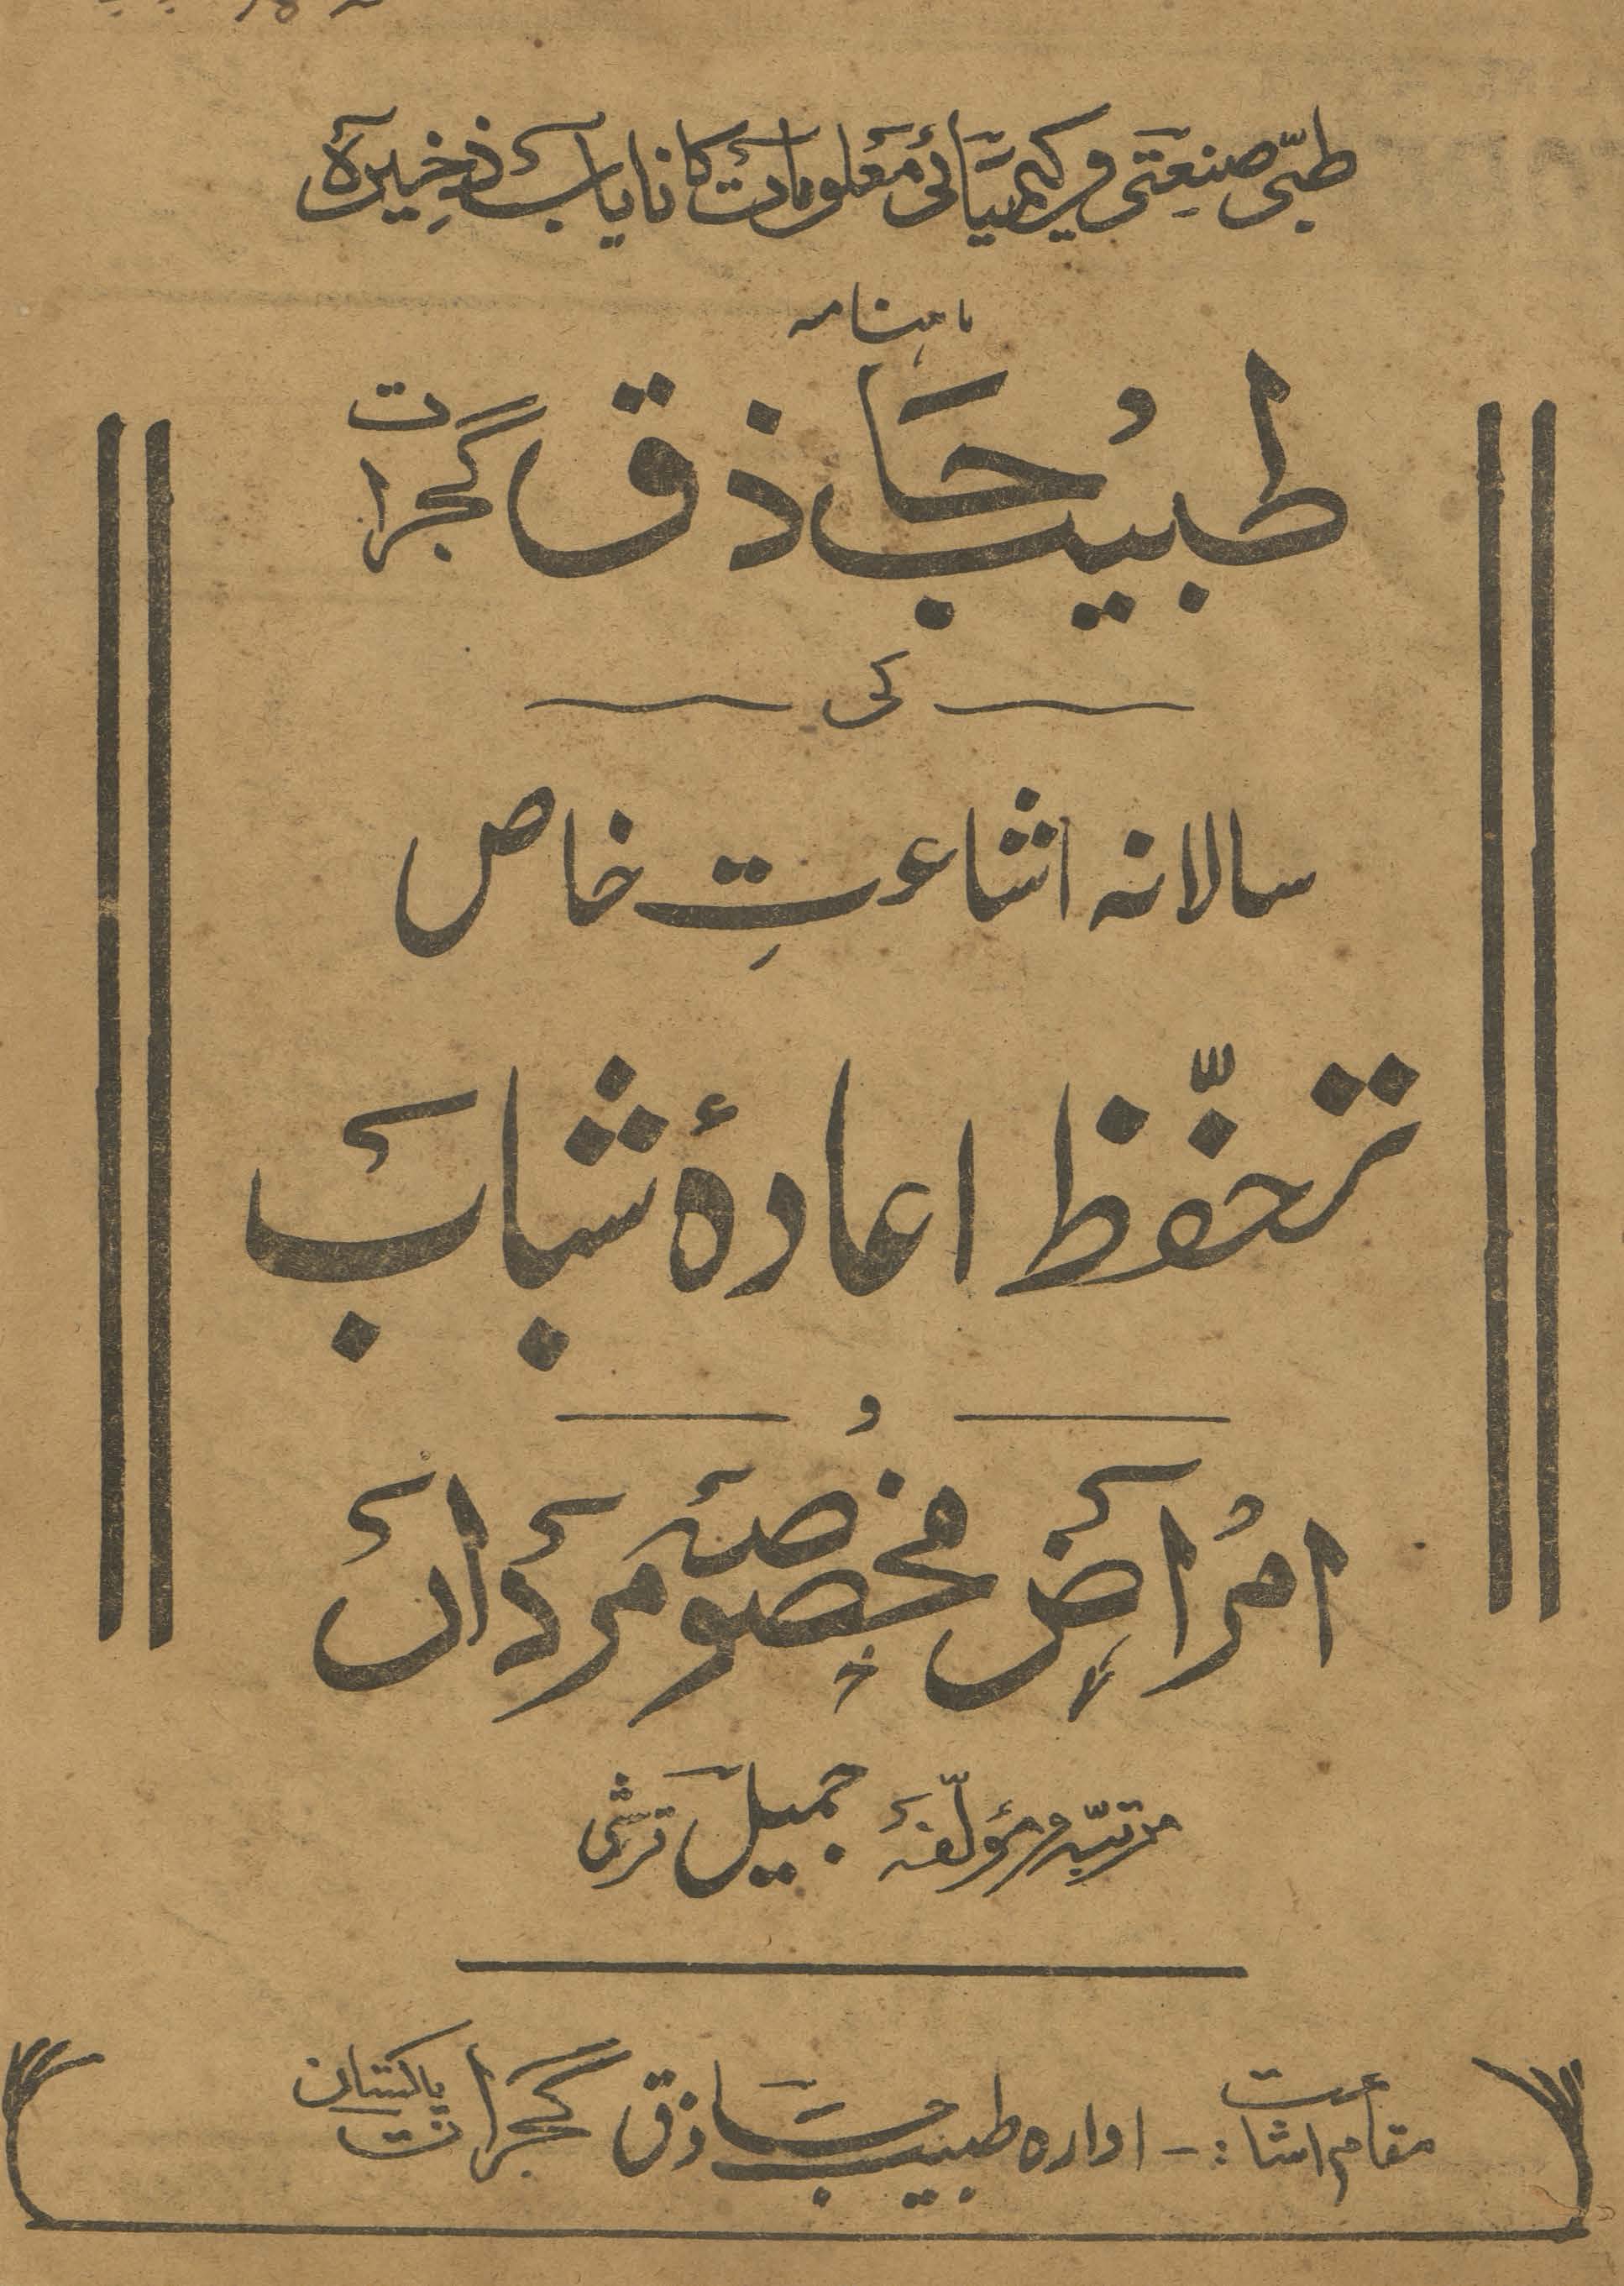 طبّی صنعتی و کیمیائی معلومات کا نایاب ذخیرہ
ماہنامہ
طبیب حاذق گجرات
کی
سالانہ اشاعتِ خاص
تحفّظ اعادۂ شباب
و
امراض مخصوصہ مرداں
مرتبہ و مؤلّفہ جمیل قرشی
مقام اشاعت :- ادارہ طبیب حاذق گجرات پاکستان